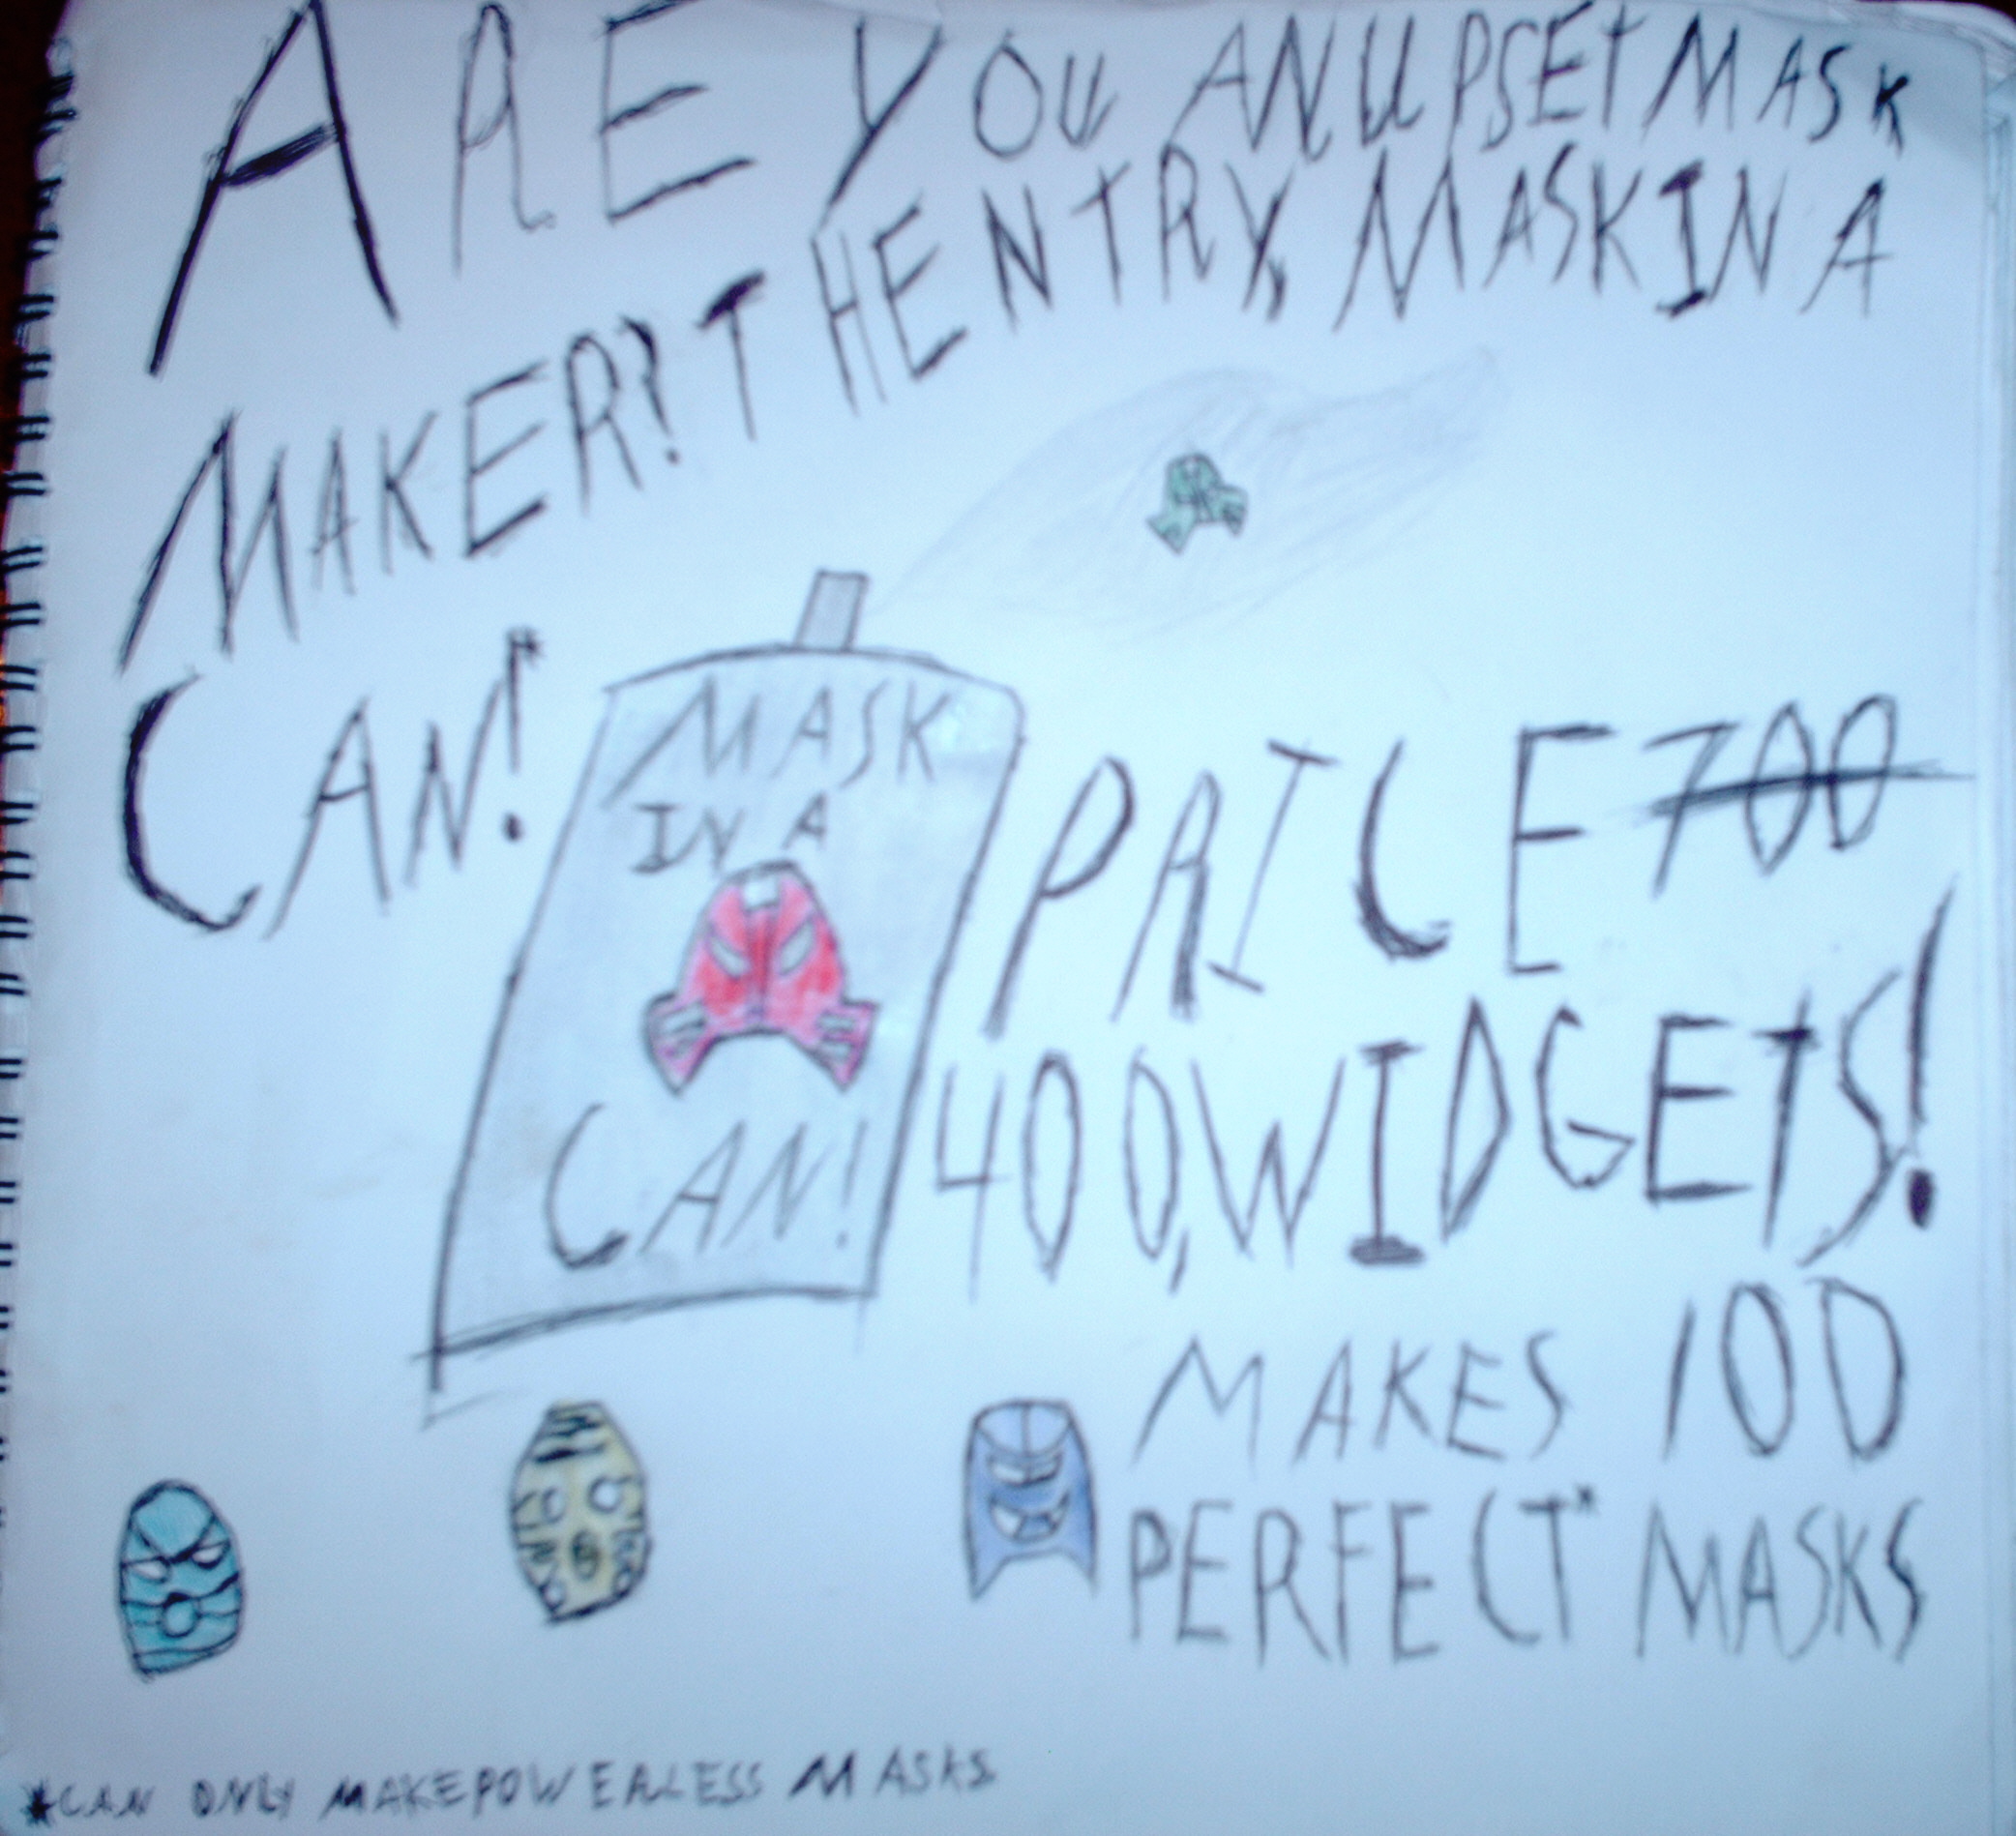 ARE YOU AN UPSET MASK
MAKER? THEN TRY, MASK IN A
CAN!*
MASK
IN A
CAN!
PRICE 700
400, WIDGETS!
MAKES 100
PERFECT* MASKS
*CAN ONLY MAKE POWERLESS MASKS